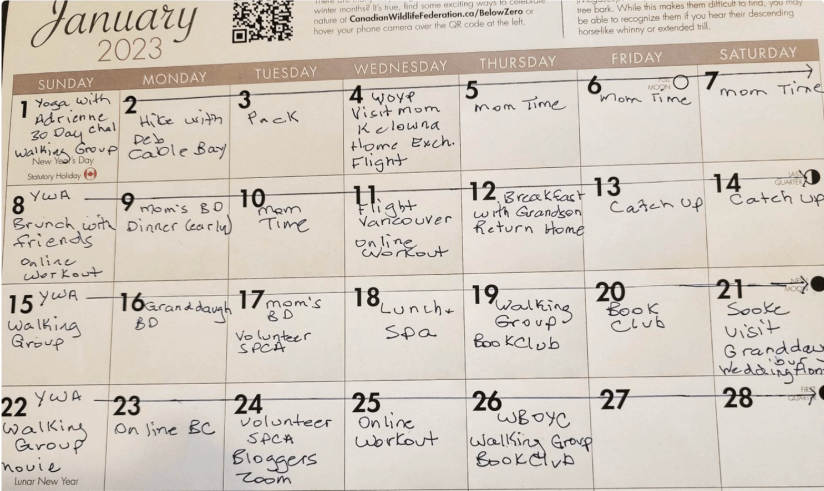 January
2023
winter months? It's true, find some exciting ways to celebrate
nature at CanadianWildlifeFederation.ca/BelowZero or
hover your phone camera over the QR code at the left.
tree bark. While this makes them difficult to find, you may
be able to recognize them if you hear their descending
horselike whinny or extended trill.
SUNDAY MONDAY TUESDAY WEDNESDAY THURSDAY FRIDAY SATURDAY
1 Yoga with
Adrienne
30 Day Chal
Walking Group
New Year's Day
Statutory Holiday
2
Hike with
Deb
Cable Bay
3
Pack
4 WOYP
Visit mom
Kelowna
Home Exch.
Flight
5
Mom Time
6 MOON
Mom Time
7
Mom Time
8 YWA
Brunch with
friends
Online
Workout
9 Mom's BD
Dinner (early)
10
Mom
Time
11
Flight
Vancouver
Online
Workout
12 Breakfast
with Grandson
Return Home
13
Catch up
14 LAST QUARTER
Catch up
15 YWA
Walking
Group
16 Granddaugh
BD
17 mom's
BD
Volunteer
SPCA
18
Lunch +
Spa
19
Walking
Group
Book Club
20
Book
Club
21 NEW MOON
Sooke
Visit
Granddau
Wedding
22 YWA
Walking
Group
movie
Lunar New Year
23
Online BC
24
Volunteer
SPCA
Bloggers
Zoom
25
Online
Workout
26
WBOYC
Walking Group
Book Club
27
28 FIRST QUARTER